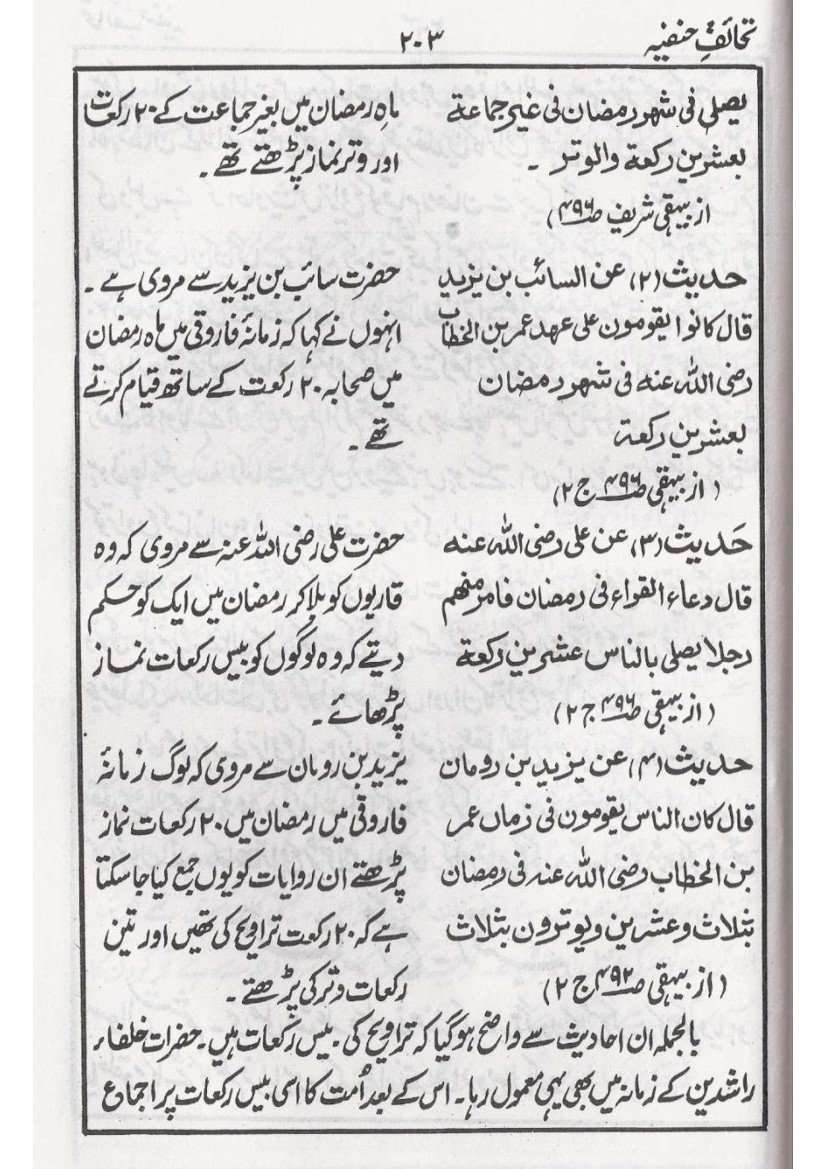 تحائفِ حنفیہ
۲۰۳
یصلی فی شهر رمضان فی غیر جماعة
بعشرین رکعة والوتر ۔
از بیہقی شریف صـ۴۹۶)
ماہِ رمضان میں بغیر جماعت کے ۲۰ رکعات
اور وتر نماز پڑھتے تھے ۔
حدیث (۲) عن السائب بن یزید
قال کانوا یقومون علی عهد عمر بن الخطاب
رضی اللہ عنه فی شهر رمضان
بعشرین رکعة
(از بیہقی صـ۴۹۶ ج ۲)
حضرت سائب بن یزید سے مروی ہے ۔
انہوں نے کہا کہ زمانۂ فاروقی میں ماہ رمضان
میں صحابہ ۲۰ رکعت کے ساتھ قیام کرتے
تھے ۔
حَدیث (۳) عن علی رضی اللہ عنه
قال دعاء القراء فی رمضان فامر منهم
رجلا یصلی بالناس عشرین رکعة
(از بیہقی صـ۴۹۶ ج ۲)
حضرت علی رضی اللہ عنہ سے مروی کہ وہ
قاریوں کو بلا کر رمضان میں ایک کو حکم
دیتے کہ وہ لوگوں کو بیس رکعات نماز
پڑھائے ۔
حدیث (۴) عن یزید بن رومان
قال کان الناس یقومون فی زمان عمر
بن الخطاب رضی اللہ عنه فی رمضان
بثلاث وعشرین ویوترون بثلاث
(از بیہقی صـ۴۹۲ ج ۲)
یزید بن رومان سے مروی کہ لوگ زمانۂ
فاروقی میں رمضان میں ۲۰ رکعات نماز
پڑھتے ان روایات کو یوں جمع کیا جا سکتا
ہے کہ ۲۰ رکعت تراویح کی تھیں اور تین
رکعات وتر کی پڑھتے ۔
بالجملہ ان احادیث سے واضح ہو گیا کہ تراویح کی بیس رکعات ہیں ۔ حضرات خلفاء
راشدین کے زمانہ میں بھی یہی معمول رہا ۔ اس کے بعد اُمت کا اسی بیس رکعات پر اجماع